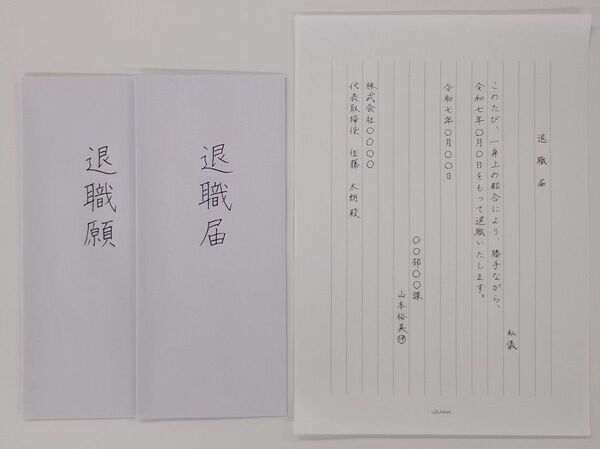 退職願
退職届
退職届
私儀
このたび、一身上の都合により、勝手ながら、
令和七年〇月〇日をもって退職いたします。
令和七年〇月〇〇日
〇〇部〇〇課
山本裕美㊞
株式会社〇〇〇〇
代表取締役 佐藤 太朗 殿